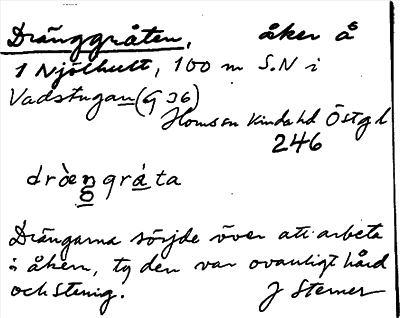 Dränggråten, åker å
1 Njölhult, 100 m S.N i
Vadstugan (G 36)
Horn sn Kinda hd Östg l
246
dræ̀ŋgrå̀ta
Drängarna sörjde över att arbeta
i åkern, ty den var ovanligt hård
och stenig. J Sterner